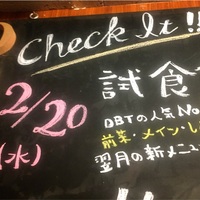 Check It!!
2/20
(水)
試食
DBTの人気No
前菜・メイン・
翌月の新メニュ